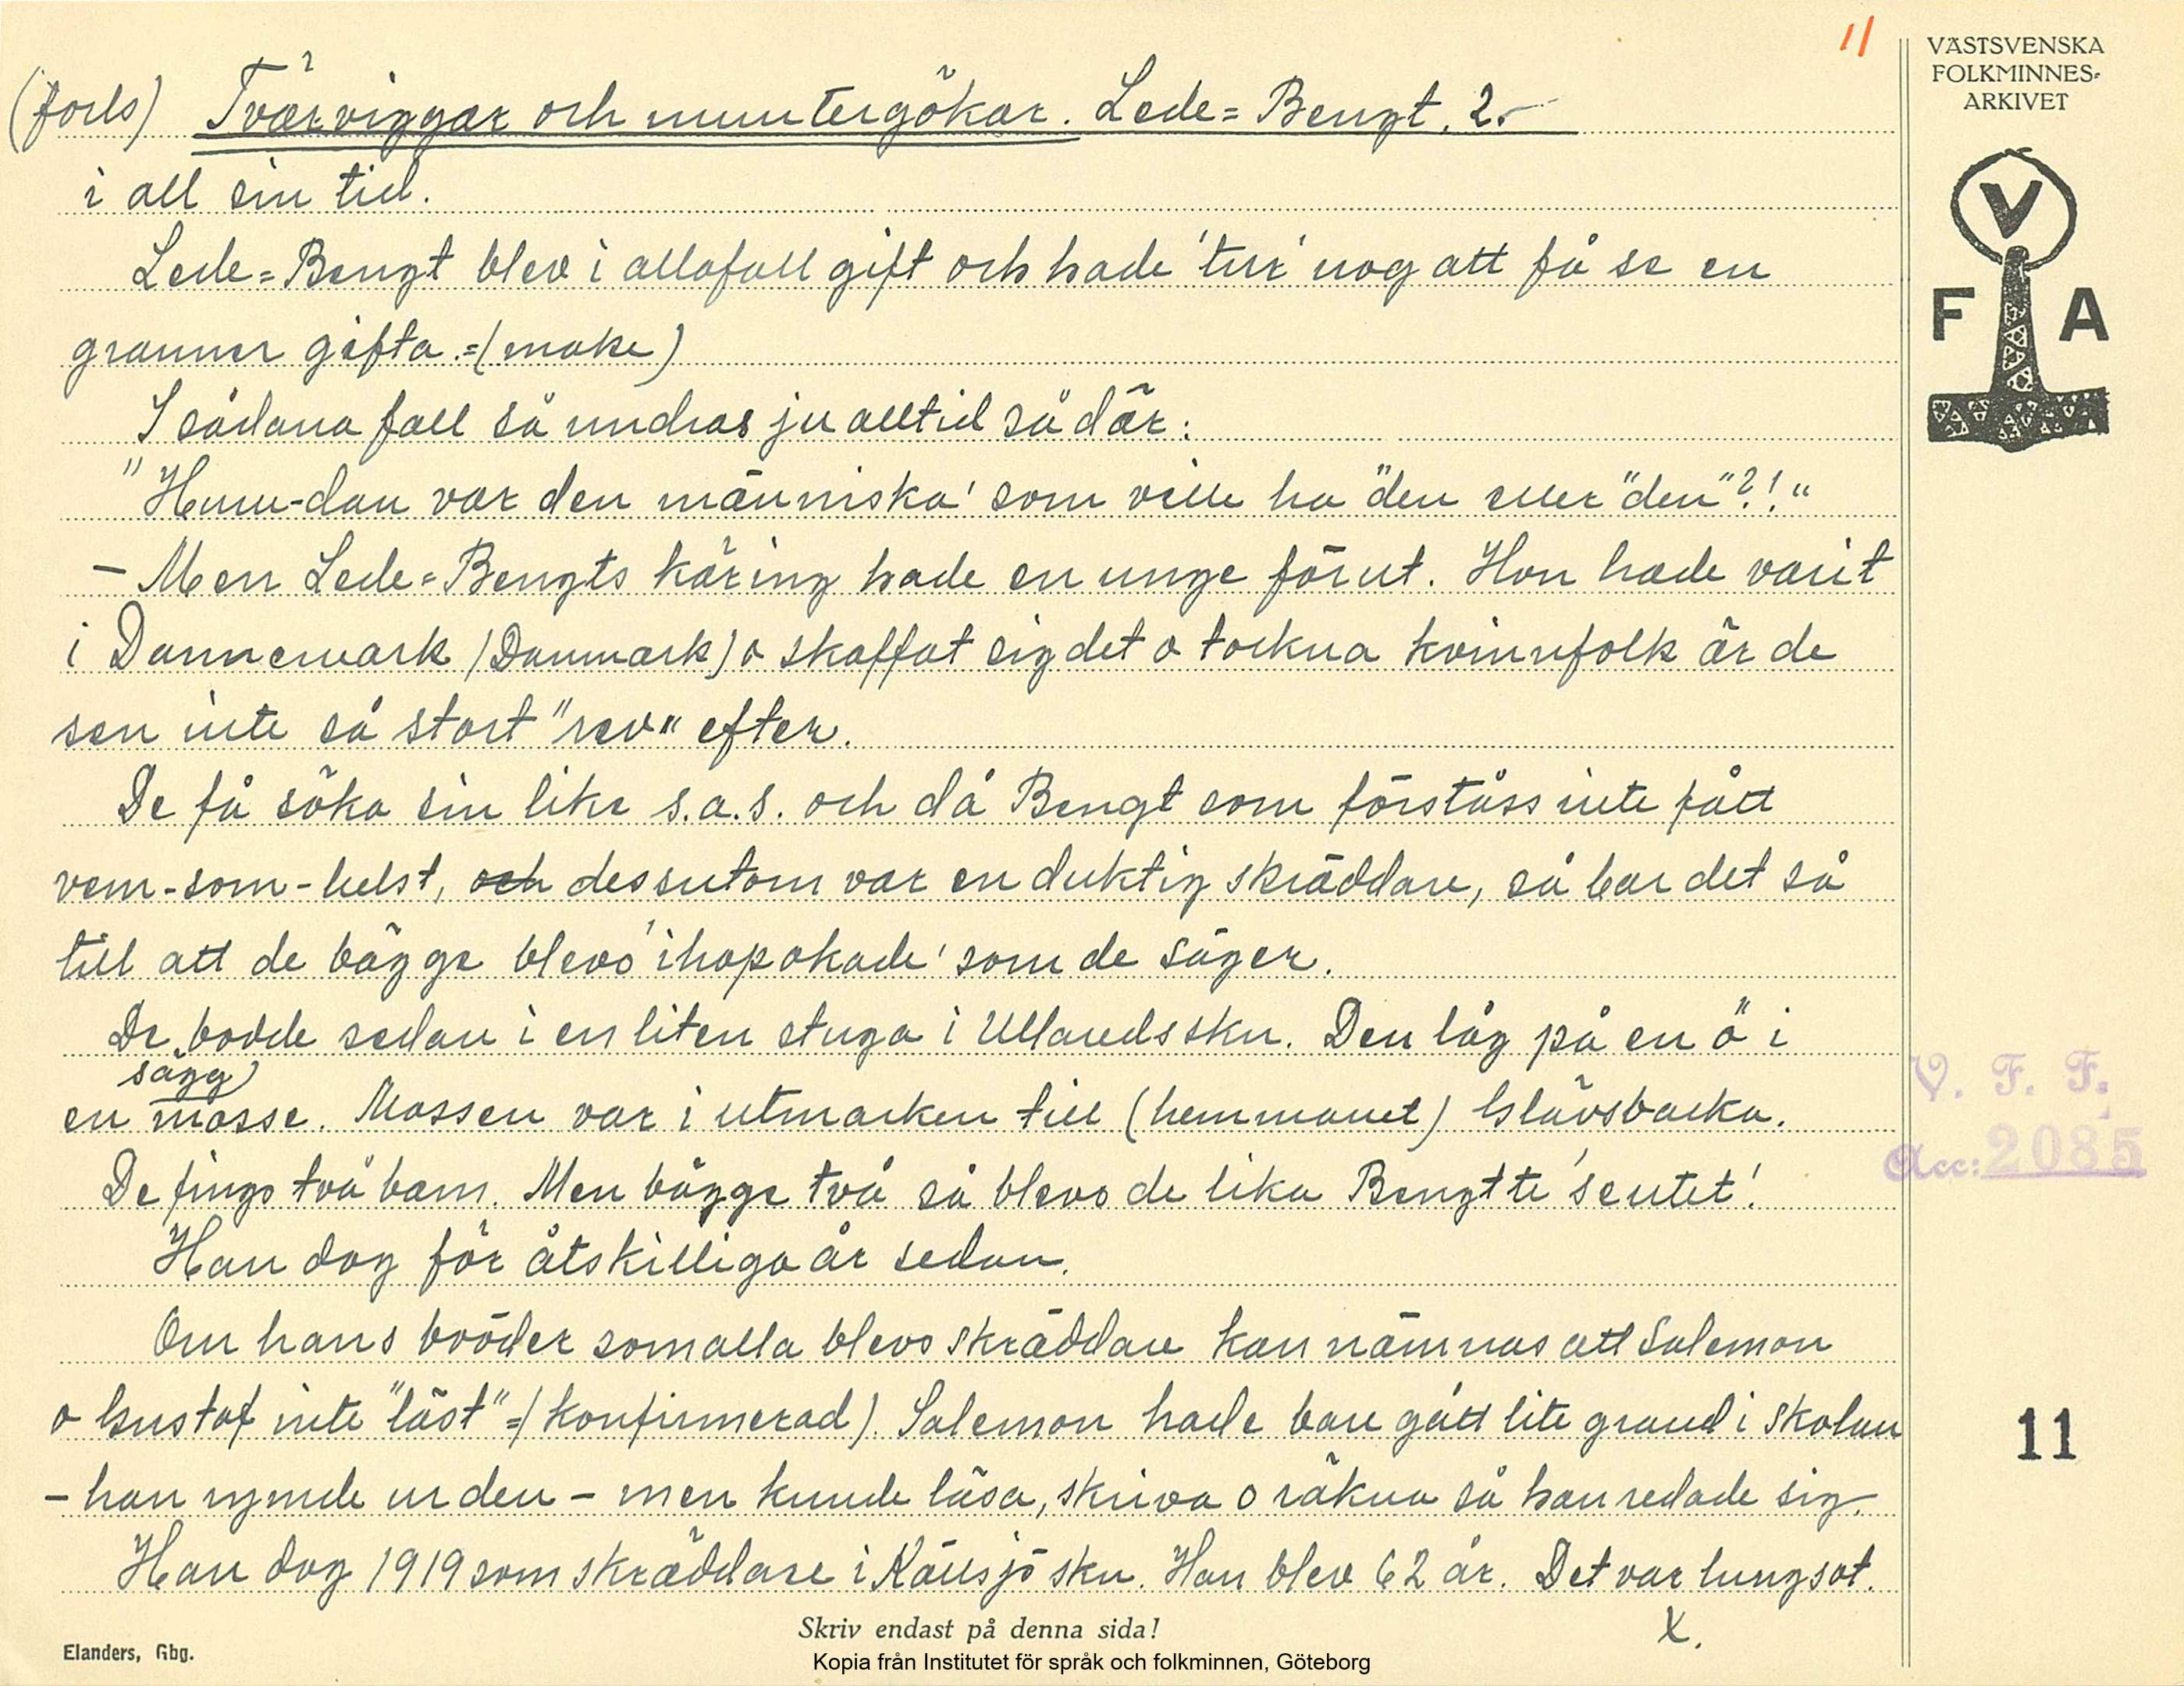 11
VÄSTSVENSKA
FOLKMINNES-
ARKIVET
V
F A
(forts) Tvärviggar och muntergökar. Lede=Bengt. 2.
i all sin tid.
Lede=Bengt blev i allafall gift och hade 'tur' nog att få se en
granner gifta.=(make)
I sådana fall så undras ju alltid så där:
"Huru-dan var den människa' som ville ha "den eller "den"?!"
- Men Lede=Bengts käring hade en unge förut. Hon hade varit
i Dannemark (Danmark) o skaffat sig det o tockna kvinnfolk är de
sen inte så stort "rev" efter.
De få söka sin like s.a.s. och då Bengt som förståss inte fått
vem-som-helst, och dessutom var en duktig skräddare, så bar det så
till att de bägge blevo 'ihopokade' som de säger.
De bodde sedan i en liten stuga i Ullareds skn. Den låg på en ö i
sägg)
en mosse. Mossen var i utmarken till (hemmanet) Glåvsbacka.
De fingo två barn. Men bägge två så blevo de lika Bengt te 'seutet'!
Han dog för åtskilliga år sedan.
Om hans bröder som alla blevo skräddare kan nämnas att Salemon
o Gustaf inte "läst"=(konfirmerad). Salemon hade bare gått lite grand i skolan
- han rymde ur den - men kunde läsa, skriva o räkna så han redade sig.
Han dog 1919 som skräddare i Källsjö skn. Han blev 62 år. Det var lungsot.
x.
V. F. F.
Acc: 2085
11
Skriv endast på denna sida!
Elanders, Gbg.
Kopia från Institutet för språk och folkminnen, Göteborg